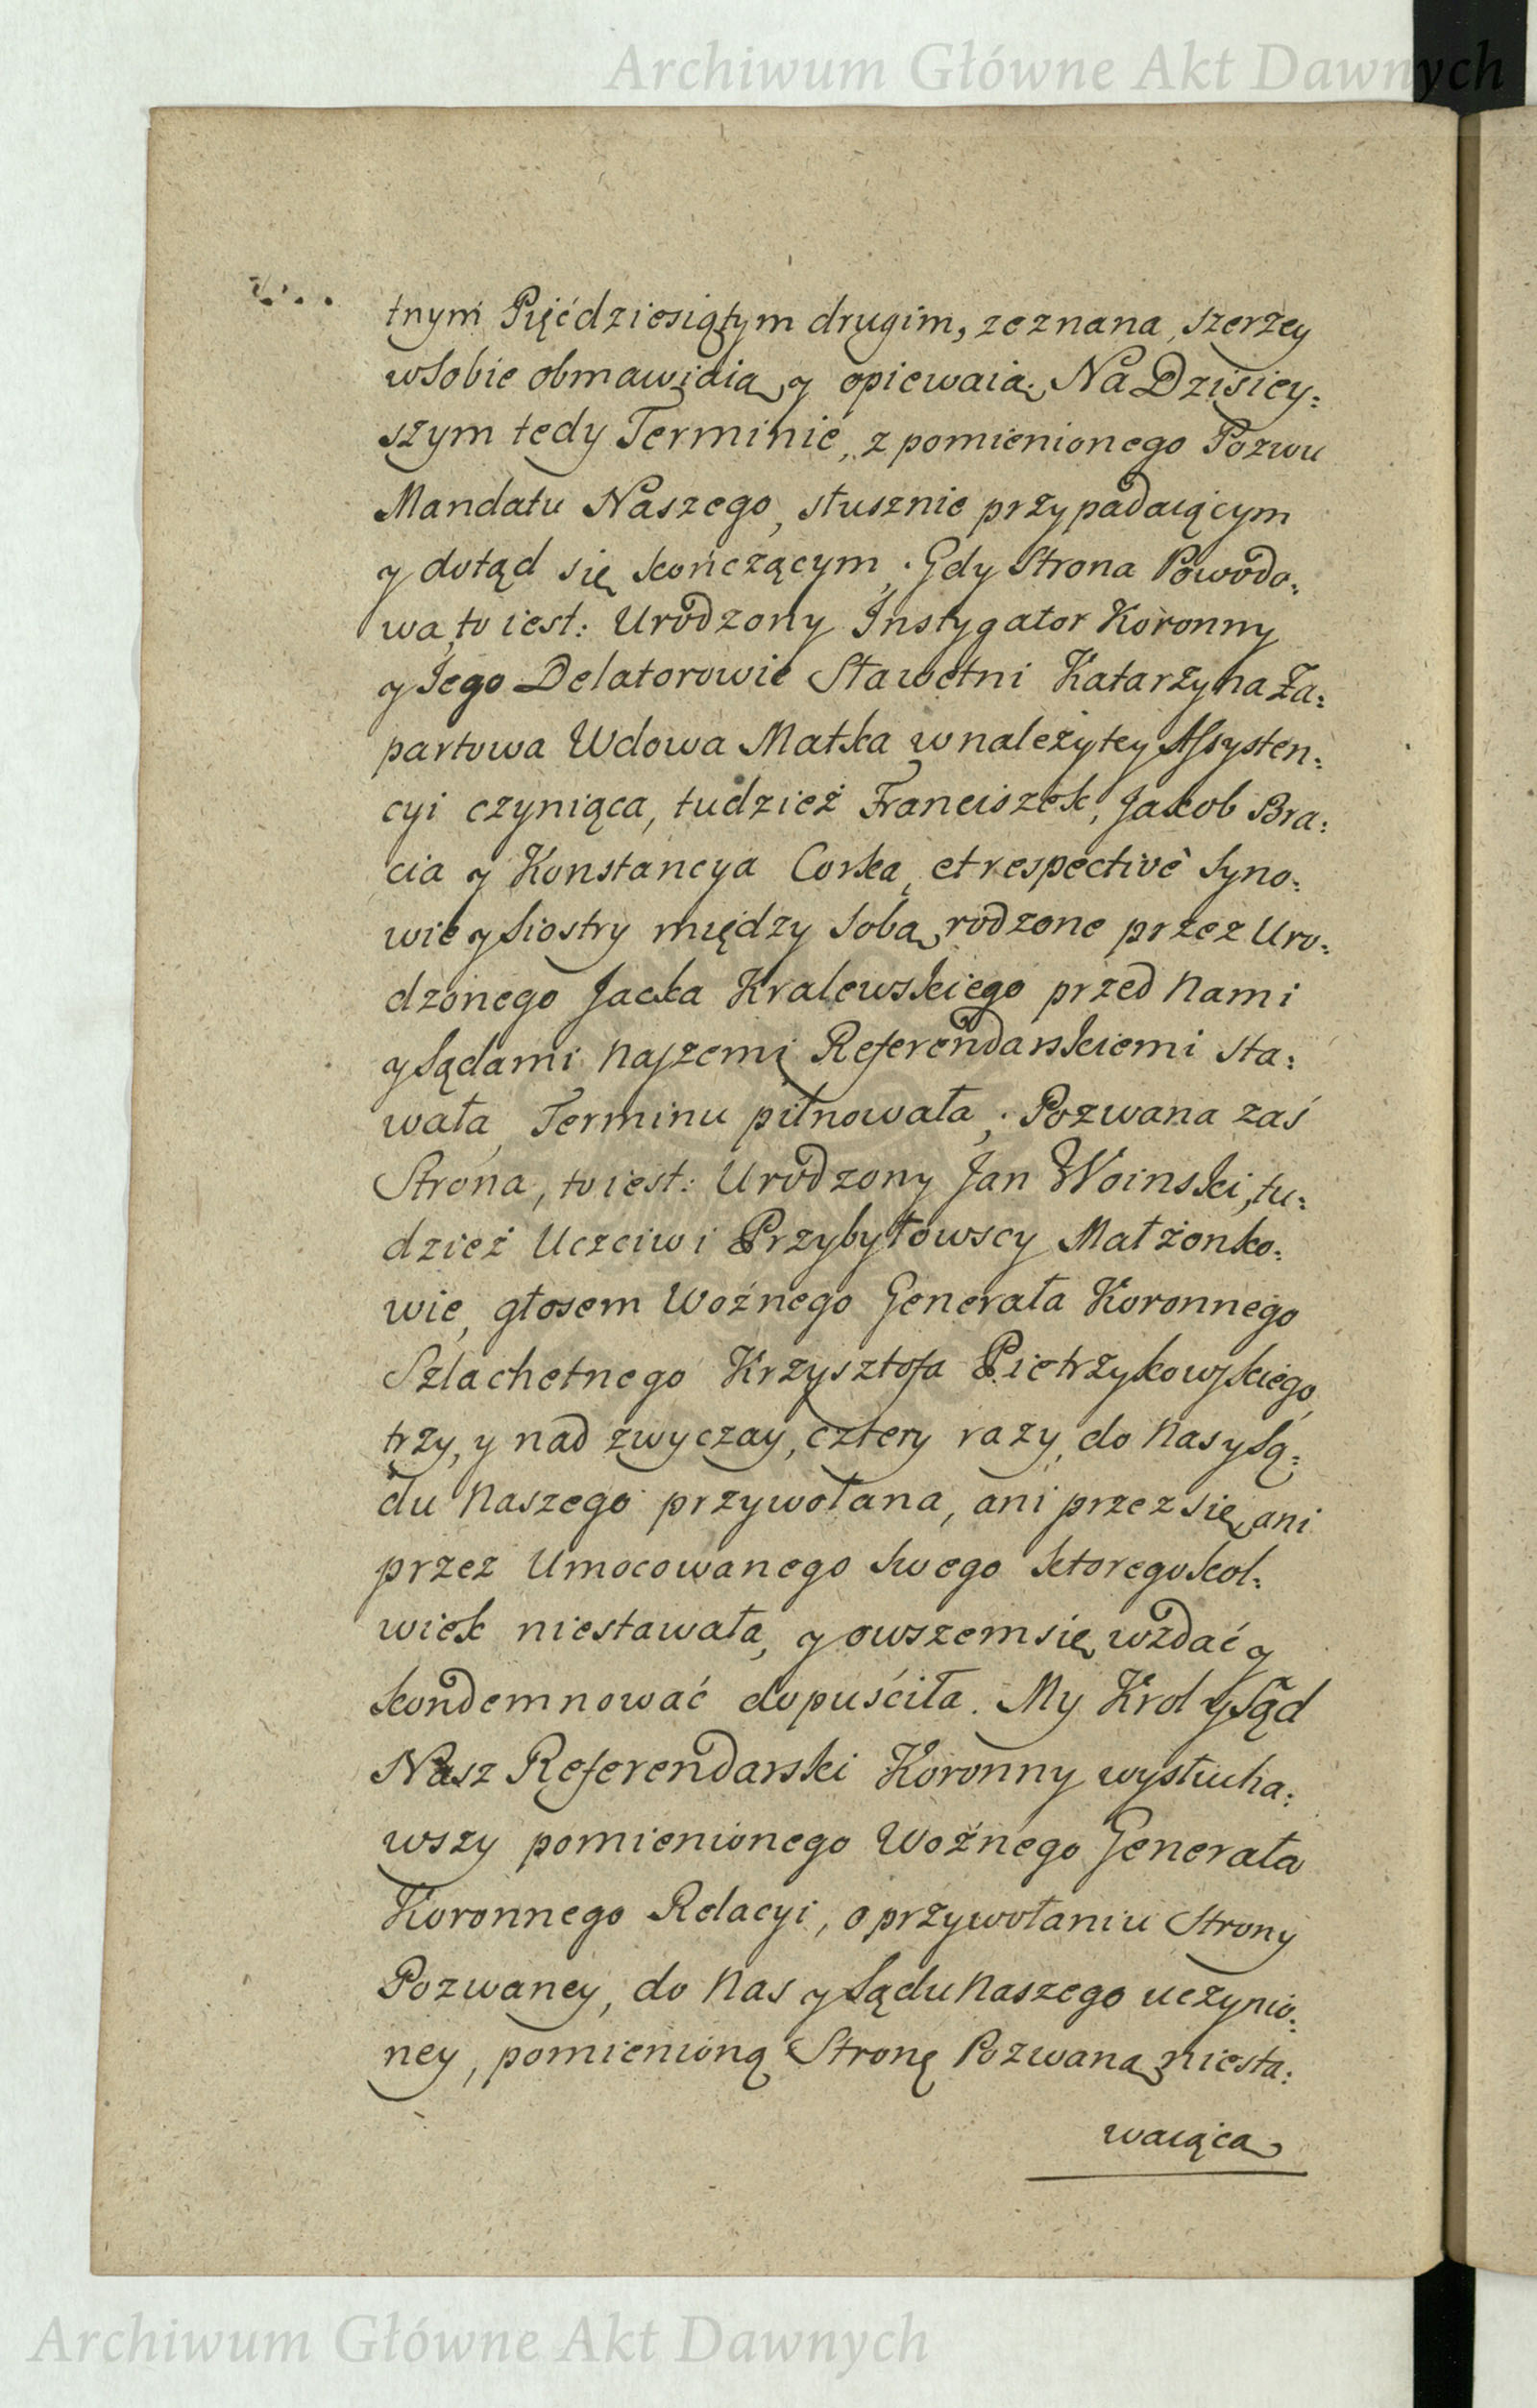 Archiwum Główne Akt Dawnych
tnym Pięćdziesiątym drugim, zeznana, szerzey
wsobie obmawiaią y opiewaią. Na Dzisiey:
szym tedy Terminie, z pomienionego Pozwu
Mandatu Naszego, słusznie przypadaiącym
y dotąd się kończącym, . Gdy Strona Powodo:
wa, to iest: Urodzony Instygator Koronny
y Jego Delatorowie Sławetni Katarzyna Ża:
partowa Wdowa Matka wnależytey Assysten:
cyi czyniąca, tudzież Franciszek, Jakob Bra:
cia y Konstancya Corka, et respectivè Syno:
wie y Siostry między Sobą rodzone przez Uro:
dzonego Jacka Kralewskiego przed Nami
y Sądami Naszemi Referendarskiemi sta:
wała, Terminu pilnowała, . Pozwana zaś
Strona, to iest: Urodzony Jan Woinski, tu:
dzież Uczciwi Przybyłowscy Małżonko:
wie, głosem Woźnego Generała Koronnego
Szlachetnego Krzysztofa Pietrzykowskiego,
trzy, y nad zwyczay, cztery razy, do Nas y Są:
du Naszego przywołana, ani przez się, ani
przez Umocowanego swego ktoregokol:
wiek niestawała, y owszem się wzdać y
kondemnować dopuściła. My Krol y Sąd
Nasz Referendarski Koronny wysłucha:
wszy pomienionego Woźnego Generała
Koronnego Relacyi, o przywołaniu Strony
Pozwaney, do Nas y Sądu Naszego uczynio:
ney, pomienioną Stronę Pozwaną niesta:
waiącą
Archiwum Główne Akt Dawnych